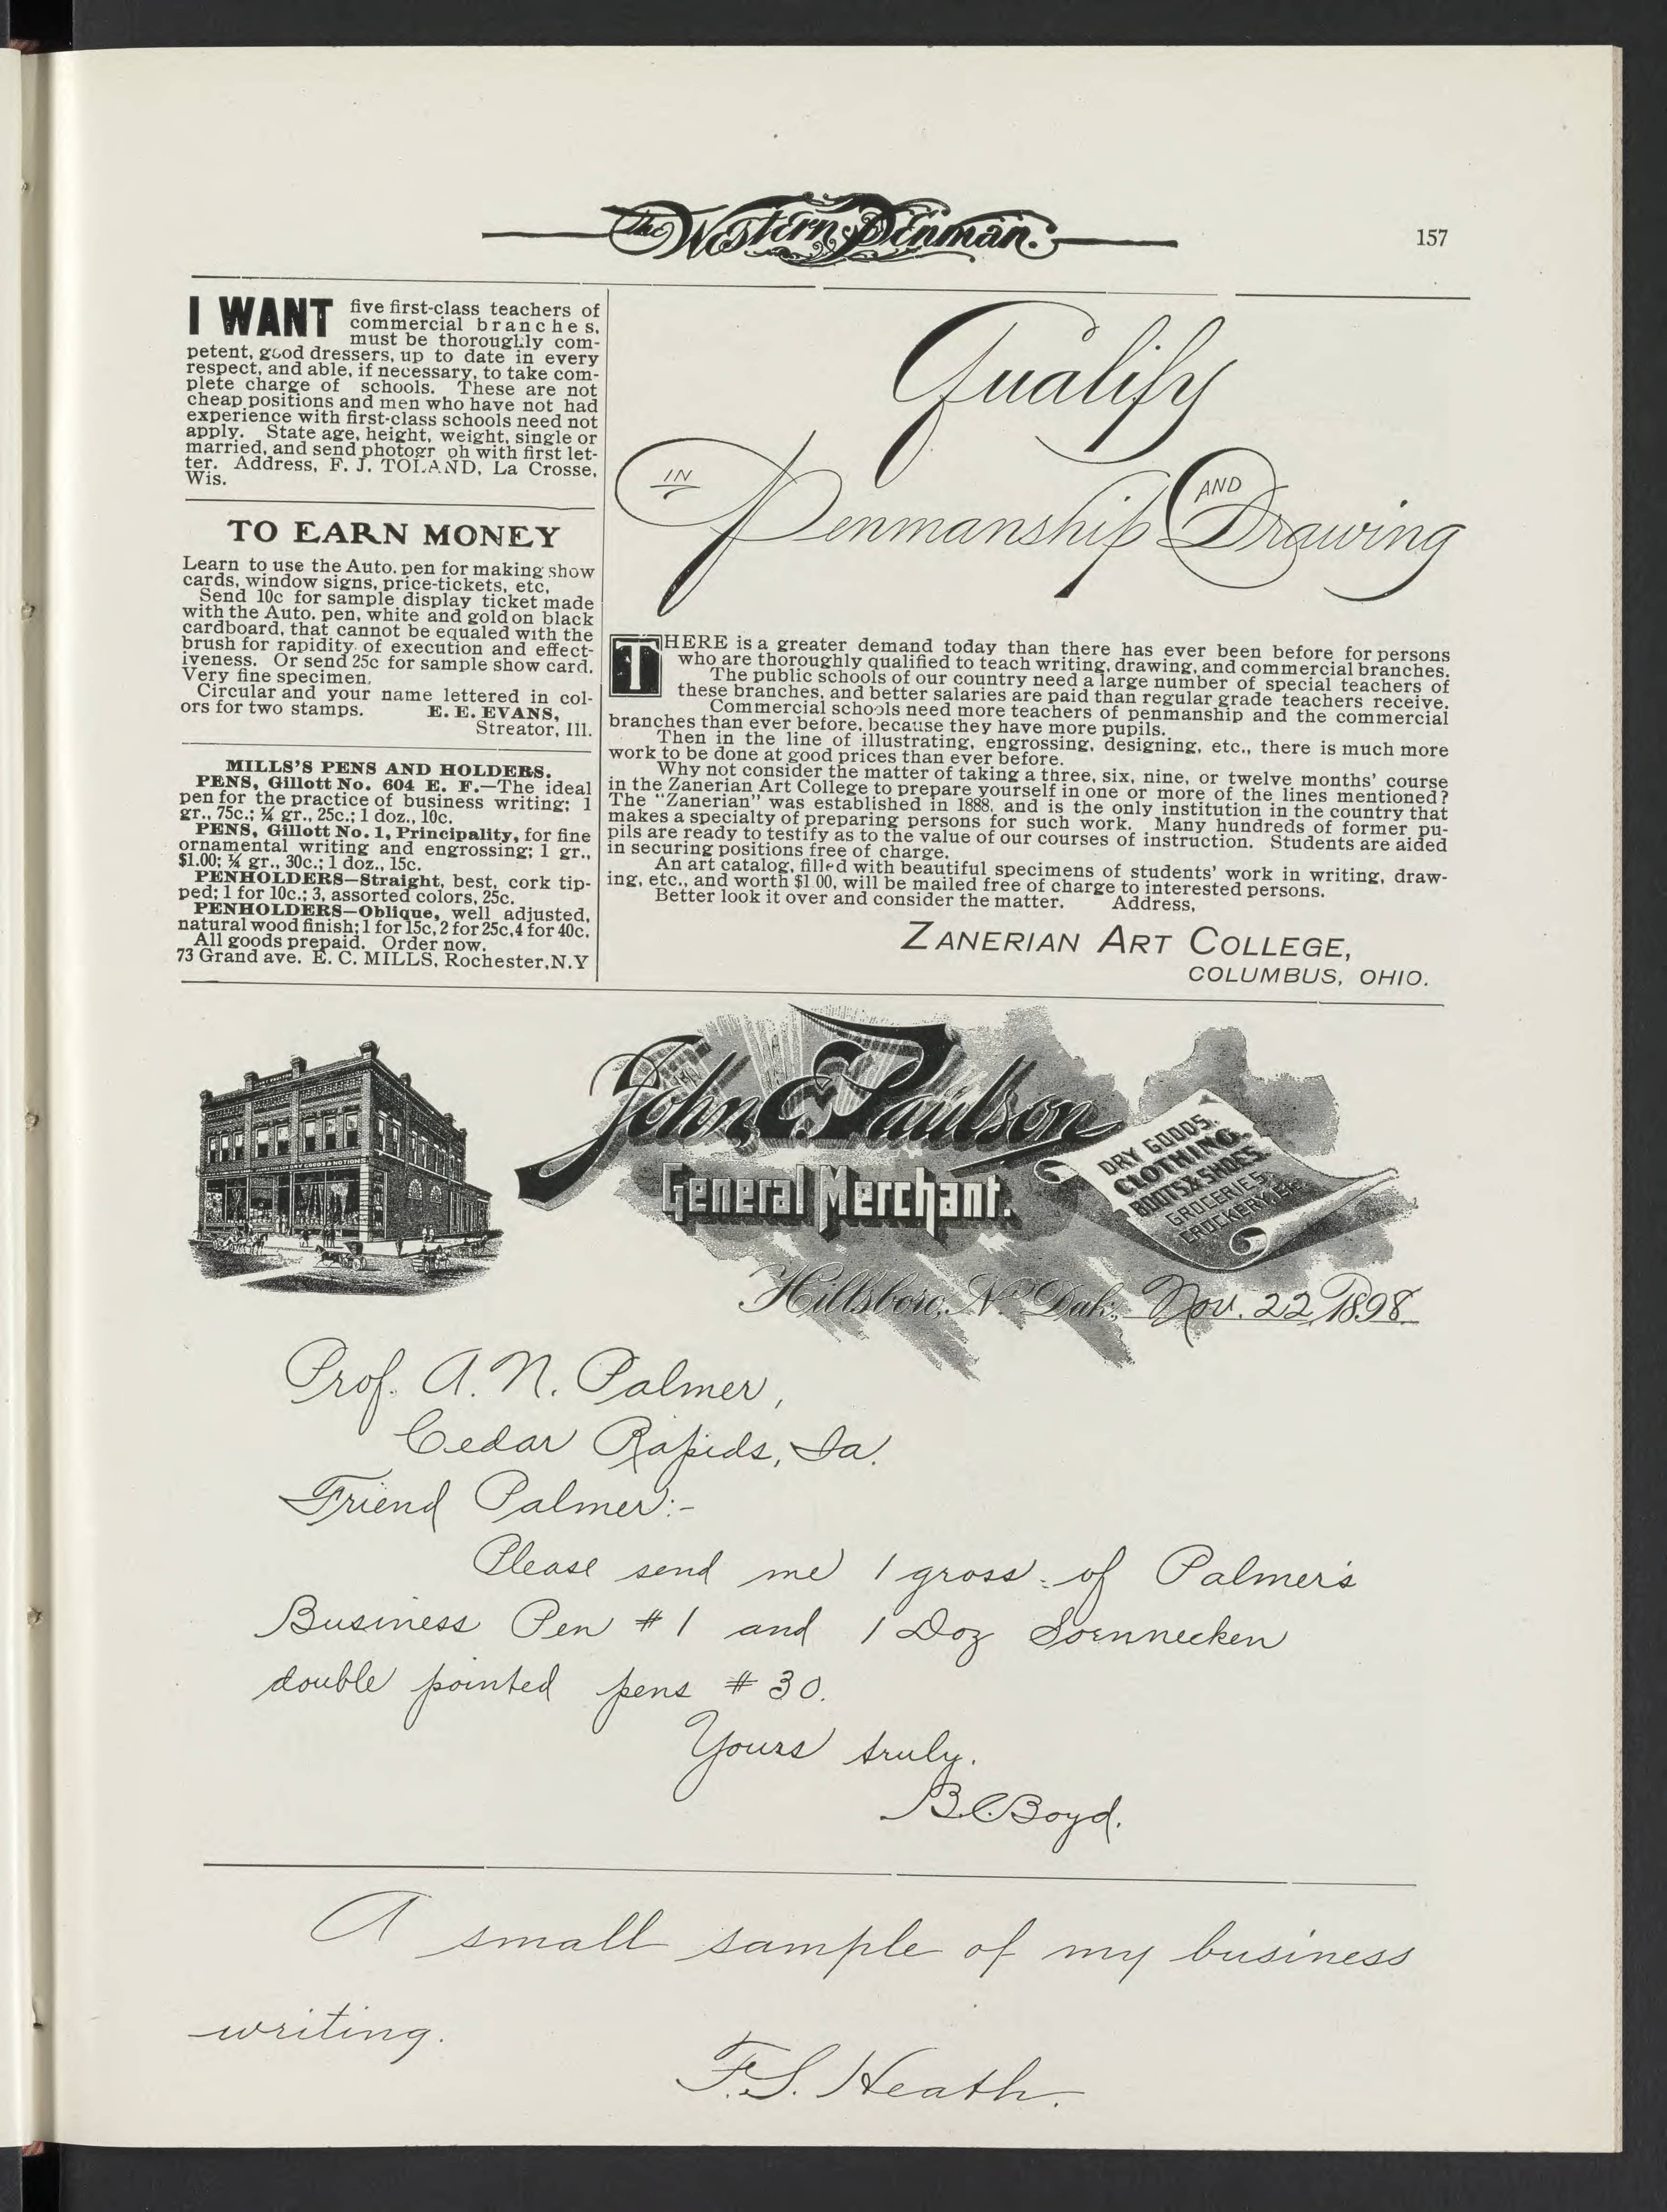 The Western Penman.
157
I WANT five first-class teachers of
commercial branches,
must be thoroughly com-
petent, good dressers, up to date in every
respect, and able, if necessary, to take com-
plete charge of schools. These are not
cheap positions and men who have not had
experience with first-class schools need not
apply. State age, height, weight, single or
married, and send photogr ph with first let-
ter. Address, F. J. TOLAND, La Crosse,
Wis.
TO EARN MONEY
Learn to use the Auto. pen for making show
cards, window signs, price-tickets, etc.
Send 10c for sample display ticket made
with the Auto. pen, white and gold on black
cardboard, that cannot be equaled with the
brush for rapidity of execution and effect-
iveness. Or send 25c for sample show card.
Very fine specimen.
Circular and your name lettered in col-
ors for two stamps. E. E. EVANS,
Streator, Ill.
MILLS'S PENS AND HOLDERS.
PENS, Gillott No. 604 E. F.—The ideal
pen for the practice of business writing; 1
gr., 75c.; ¼ gr., 25c.; 1 doz., 10c.
PENS, Gillott No. 1, Principality, for fine
ornamental writing and engrossing; 1 gr.,
$1.00; ¼ gr., 30c.; 1 doz., 15c.
PENHOLDERS—Straight, best, cork tip-
ped; 1 for 10c.; 3, assorted colors, 25c.
PENHOLDERS—Oblique, well adjusted,
natural wood finish; 1 for 15c, 2 for 25c, 4 for 40c.
All goods prepaid. Order now.
73 Grand ave. E. C. MILLS, Rochester, N.Y
Qualify
IN Penmanship AND Drawing
THERE is a greater demand today than there has ever been before for persons
who are thoroughly qualified to teach writing, drawing, and commercial branches.
The public schools of our country need a large number of special teachers of
these branches, and better salaries are paid than regular grade teachers receive.
Commercial schools need more teachers of penmanship and the commercial
branches than ever before, because they have more pupils.
Then in the line of illustrating, engrossing, designing, etc., there is much more
work to be done at good prices than ever before.
Why not consider the matter of taking a three, six, nine, or twelve months' course
in the Zanerian Art College to prepare yourself in one or more of the lines mentioned?
The "Zanerian" was established in 1888, and is the only institution in the country that
makes a specialty of preparing persons for such work. Many hundreds of former pu-
pils are ready to testify as to the value of our courses of instruction. Students are aided
in securing positions free of charge.
An art catalog, filled with beautiful specimens of students' work in writing, draw-
ing, etc., and worth $1.00, will be mailed free of charge to interested persons.
Better look it over and consider the matter. Address,
ZANERIAN ART COLLEGE,
COLUMBUS, OHIO.
John E. Paulson
General Merchant.
DRY GOODS,
CLOTHING,
BOOTS & SHOES,
GROCERIES,
CROCKERY, Etc.
Hillsboro, N. Dak., Nov. 22, 1898.
Prof. A. N. Palmer,
Cedar Rapids, Ia.
Friend Palmer:-
Please send me 1 gross of Palmer's
Business Pen # 1 and 1 Doz Soennecken
double pointed pens # 30.
Yours truly.
B.C. Boyd.
A small sample of my business
writing.
F.S. Heath.